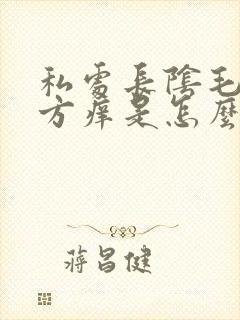 私處長陰毛
方癢是怎麼
蔣昌健